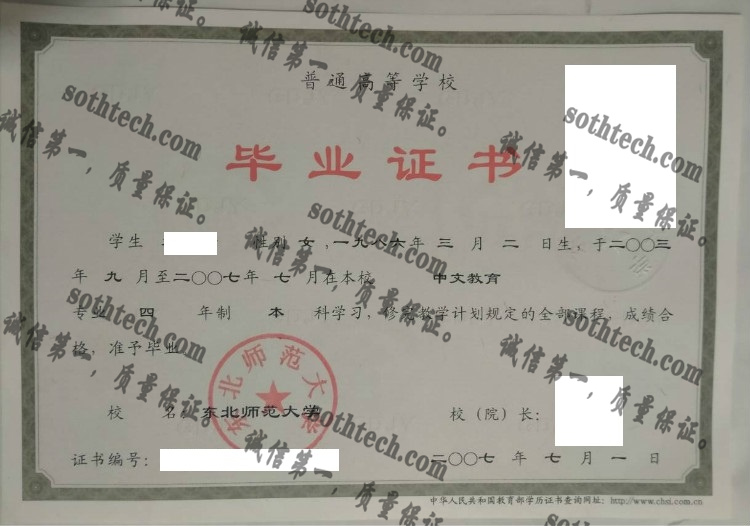 普通高等学校
毕业证书
学生 性别 女，一九八六年 三 月 二 日生，于二〇〇三
年 九 月至二〇〇七年 七 月在本校 中文教育
专业 四 年制 本 科学习，修完教学计划规定的全部课程，成绩合
格，准予毕业
校 名：东北师范大学
校（院）长：
证书编号：
二〇〇七 年 七 月 一 日
中华人民共和国教育部学历证书查询网址：http://www.chsi.com.cn
东北师范大学
sothtech.com
诚信第一，质量保证。
sothtech.com
诚信第一，质量保证。
sothtech.com
诚信第一，质量保证。
sothtech.com
诚信第一，质量保证。
sothtech.com
诚信第一，质量保证。
sothtech.com
诚信第一，质量保证。
sothtech.com
诚信第一，质量保证。
sothtech.com
诚信第一，质量保证。